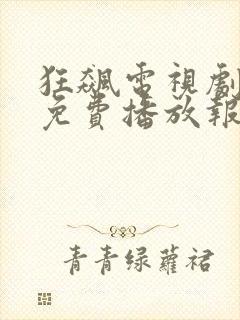 狂飆電視劇
免費播放報
青青绿蘿裙